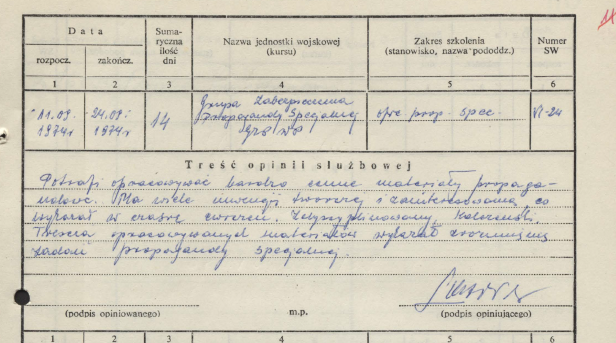 Data
Suma-
ryczna
ilość
dni
Nazwa jednostki wojskowej
(kursu)
Zakres szkolenia
(stanowisko, nazwa pododdz.)
Numer
SW
rozpocz.
zakończ.
1 2 3 4 5 6
11.09. 24.09. 14 Grupa Zabezpieczenia VI-24
1974r 1974r Propagandy Specjalnej
ofic prop. spec.
Treść opinii służbowej
Potrafi opracowywać bardzo cenne materiały propaga-
ndowe. Ma wiele inwencji twórczej i zainteresowania, co
wykazał w czasie ćwiczeń. Zdyscyplinowany, koleżeński.
opracowywanych materiałów wykazał
zadań propagandy specjalnej.
(podpis opiniowanego)
m.p.
(podpis opiniującego)
1 2 3 4 5 6